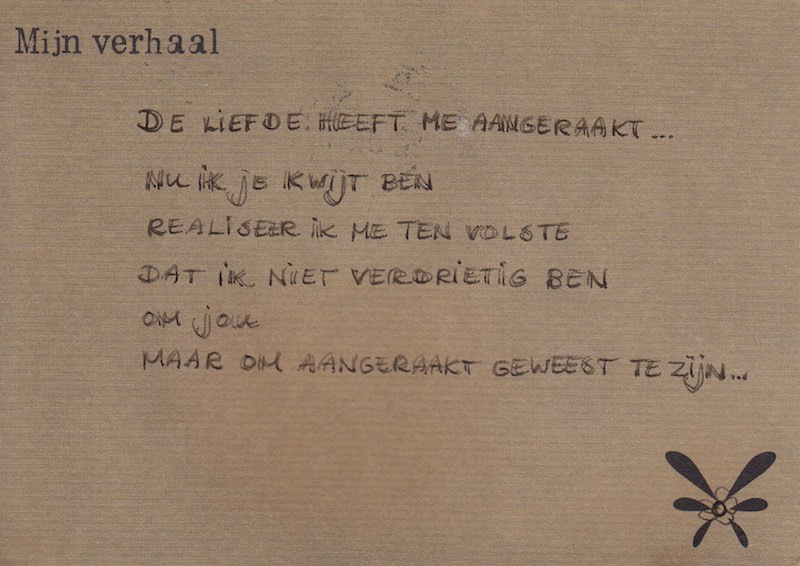 Mijn verhaal
DE LIEFDE HEEFT ME AANGERAAKT...
NU IK JE KWIJT BEN
REALISEER IK ME TEN VOLSTE
DAT IK NIET VERDRIETIG BEN
OM JOU
MAAR OM AANGERAAKT GEWEEST TE ZIJN...